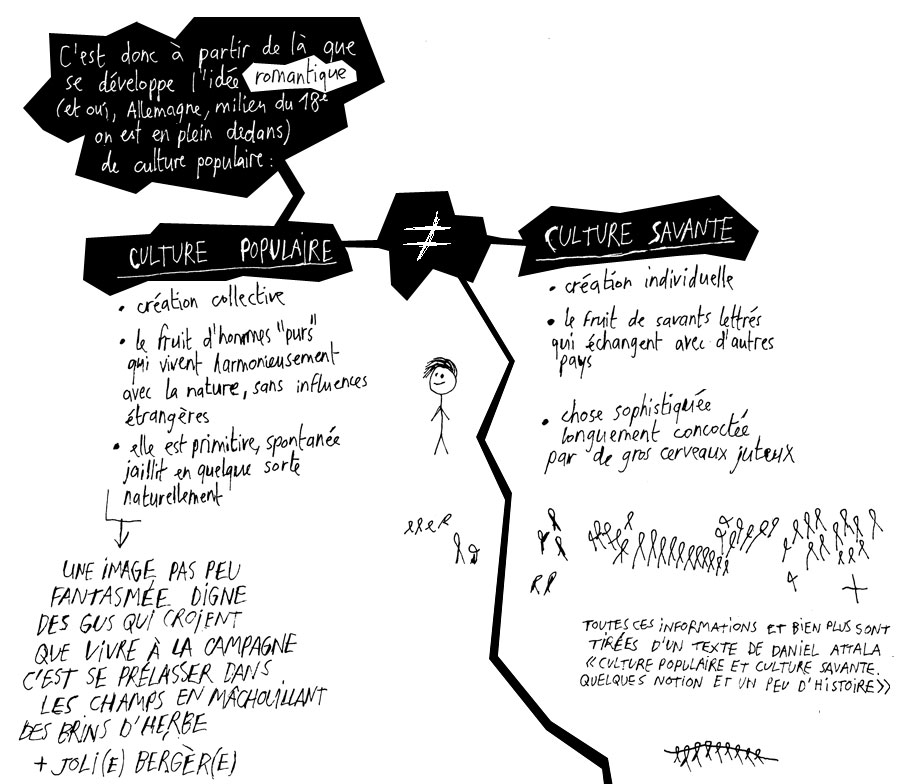 C'est donc à partir de là que
se développe l'idée romantique
(et oui, Allemagne, milieu du 18e
on est en plein dedans)
de culture populaire :
CULTURE POPULAIRE
≠
CULTURE SAVANTE
• création collective
• le fruit d'hommes "purs"
qui vivent harmonieusement
avec la nature, sans influences
étrangères
• elle est primitive, spontanée
jaillit en quelque sorte
naturellement
UNE IMAGE PAS PEU
FANTASMÉE DIGNE
DES GUS QUI CROIENT
QUE VIVRE À LA CAMPAGNE
C'EST SE PRÉLASSER DANS
LES CHAMPS EN MÂCHOUILLANT
DES BRINS D'HERBE
+ JOLI(E) BERGÈR(E)
• création individuelle
• le fruit de savants lettrés
qui échangent avec d'autres
pays
• chose sophistiquée
longuement concoctée
par de gros cerveaux juteux
TOUTES CES INFORMATIONS ET BIEN PLUS SONT
TIRÉES D'UN TEXTE DE DANIEL ATTALA
«CULTURE POPULAIRE ET CULTURE SAVANTE.
QUELQUES NOTION ET UN PEU D'HISTOIRE»